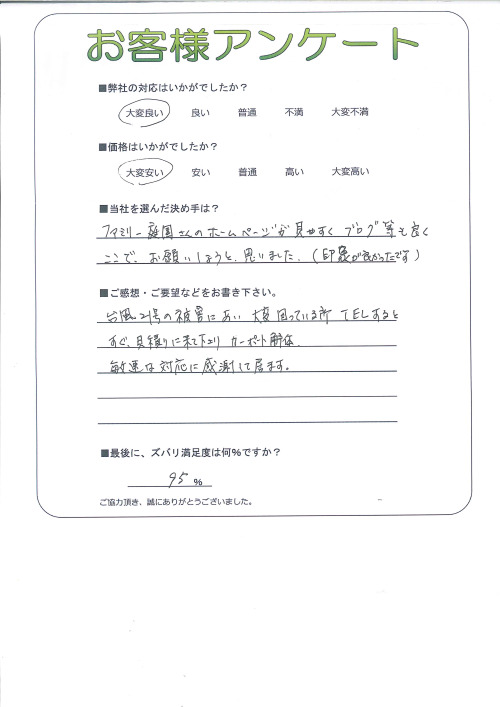 お客様アンケート
■弊社の対応はいかがでしたか？
大変良い 良い 普通 不満 大変不満
■価格はいかがでしたか？
大変安い 安い 普通 高い 大変高い
■当社を選んだ決め手は？
ファミリー庭園さんのホームページが見やすく ブログ等も良く
ここで、お願いしようと、思いました。（印象が良かったです）
■ご感想・ご要望などをお書き下さい。
台風21号の被害にあい 大変困っている所 TELすると
すぐ、見積りに来て下さり カーポート解体、
敏速な対応に感謝して居ます。
■最後に、ズバリ満足度は何%ですか？
95 %
ご協力頂き、誠にありがとうございました。